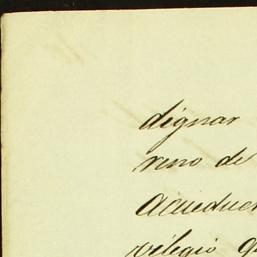 dignar
reno de
Acueduc
vilegio q